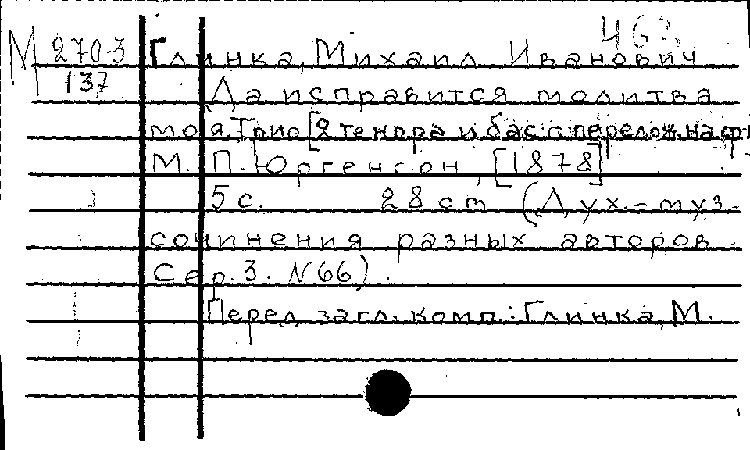 463
М 270-3 Глинка, Михаил Иванович
137 Да исправится молитва
моя. Трио [2 тенора и бас с перелож. на ф
М. П. Юргенсон, [1878]
5 с. 28 cm (Дух.-муз.
сочинения разных авторов.
Сер. 3. N 66).
Перед загл. комп.: Глинка, М.